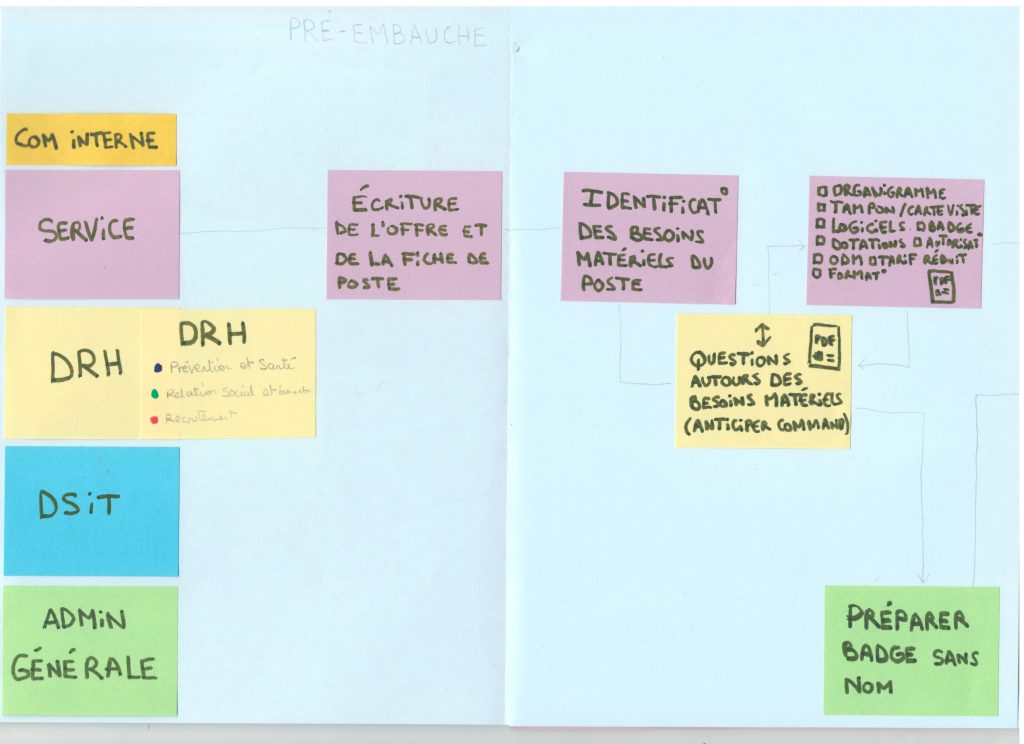 PRÉ-EMBAUCHE
COM iNTERNE
SERViCE
ÉCRITURE
DE L'OFFRE ET
DE LA FiCHE DE
POSTE
IDENTiFiCAT°
DES BESOiNS
MATÉRiELS DU
POSTE
ORGANiGRAMME
TAMPON/CARTE VISTE
LOGiCiELS BADGE
DOTATiONS AUTORiSAT°
ODM TARiF RÉDUiT
FORMAT°
PDF
DRH
DRH
Prévention et Santé
Relation Social et
Recrutement
QUESTiONS
AUTOURS DES
BESOiNS MATÉRiELS
(ANTiCiPER COMMAND)
PDF
DSiT
ADMiN
GÉNÉRALE
PRÉPARER
BADGE SANS
NOM